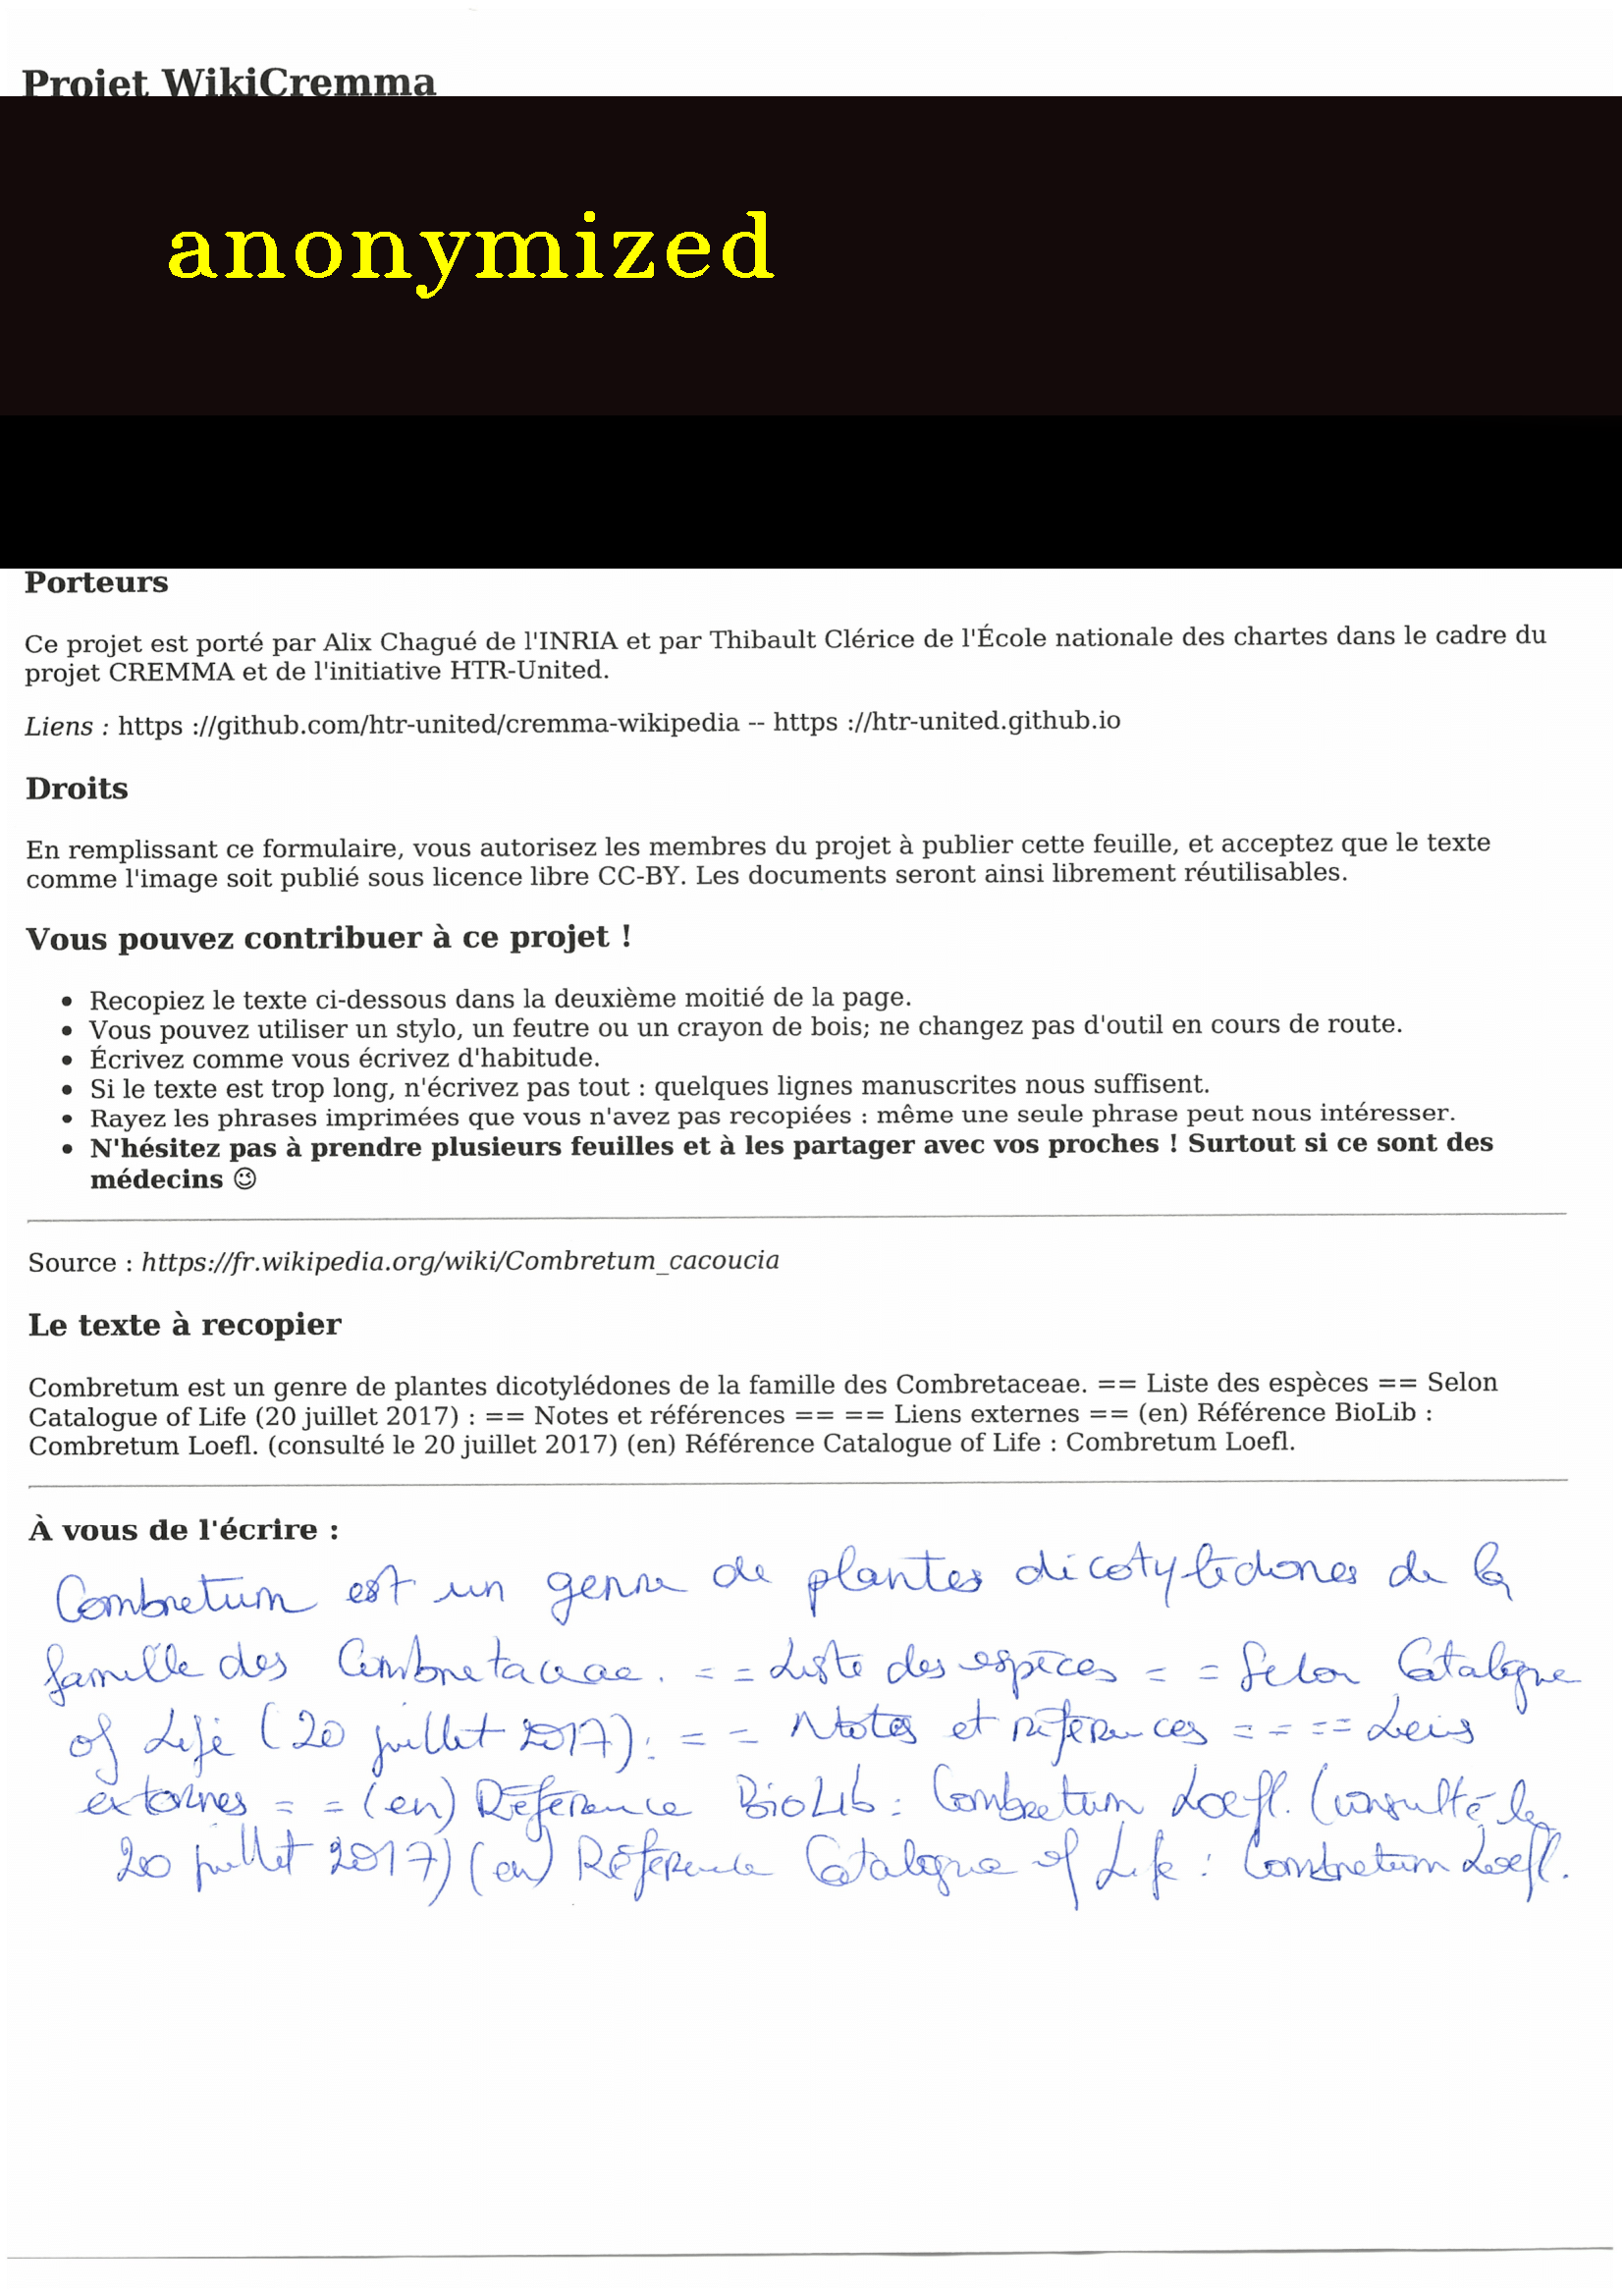 Projet WikiCremma
anonymized
Porteurs
Ce projet est porté par Alix Chagué de l'INRIA et par Thibault Clérice de l'École nationale des chartes dans le cadre du
projet CREMMA et de l'initiative HTR-United.
Liens : https ://github.com/htr-united/cremma-wikipedia -- https ://htr-united.github.io
Droits
En remplissant ce formulaire, vous autorisez les membres du projet à publier cette feuille, et acceptez que le texte
comme l'image soit publié sous licence libre CC-BY. Les documents seront ainsi librement réutilisables.
Vous pouvez contribuer à ce projet !
• Recopiez le texte ci-dessous dans la deuxième moitié de la page.
• Vous pouvez utiliser un stylo, un feutre ou un crayon de bois; ne changez pas d'outil en cours de route.
• Écrivez comme vous écrivez d'habitude.
• Si le texte est trop long, n'écrivez pas tout : quelques lignes manuscrites nous suffisent.
• Rayez les phrases imprimées que vous n'avez pas recopiées : même une seule phrase peut nous intéresser.
• N'hésitez pas à prendre plusieurs feuilles et à les partager avec vos proches ! Surtout si ce sont des
médecins 😉
Source : https://fr.wikipedia.org/wiki/Combretum_cacoucia
Le texte à recopier
Combretum est un genre de plantes dicotylédones de la famille des Combretaceae. == Liste des espèces == Selon
Catalogue of Life (20 juillet 2017) : == Notes et références == == Liens externes == (en) Référence BioLib :
Combretum Loefl. (consulté le 20 juillet 2017) (en) Référence Catalogue of Life : Combretum Loefl.
À vous de l'écrire :
Combretum est un genre de plantes dicotylédones de la
famille des Combretaceae. = = Liste des espèces = = Selon Catalogue
of Life (20 juillet 2017) : = = Notes et références = = == Leins
externes = = (en) Référence BioLib : Combretum Loefl. (consulté le
20 juillet 2017) (en) Référence Catalogue of Life : Combretum Loefl.